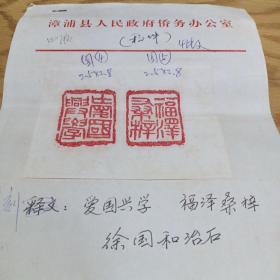 漳浦县人民政府侨务办公室
(4)
(5)
2.5×2.8
2.5×2.8
愛國興學
福澤桑梓
释文：爱国兴学 福泽桑梓
徐国和治石